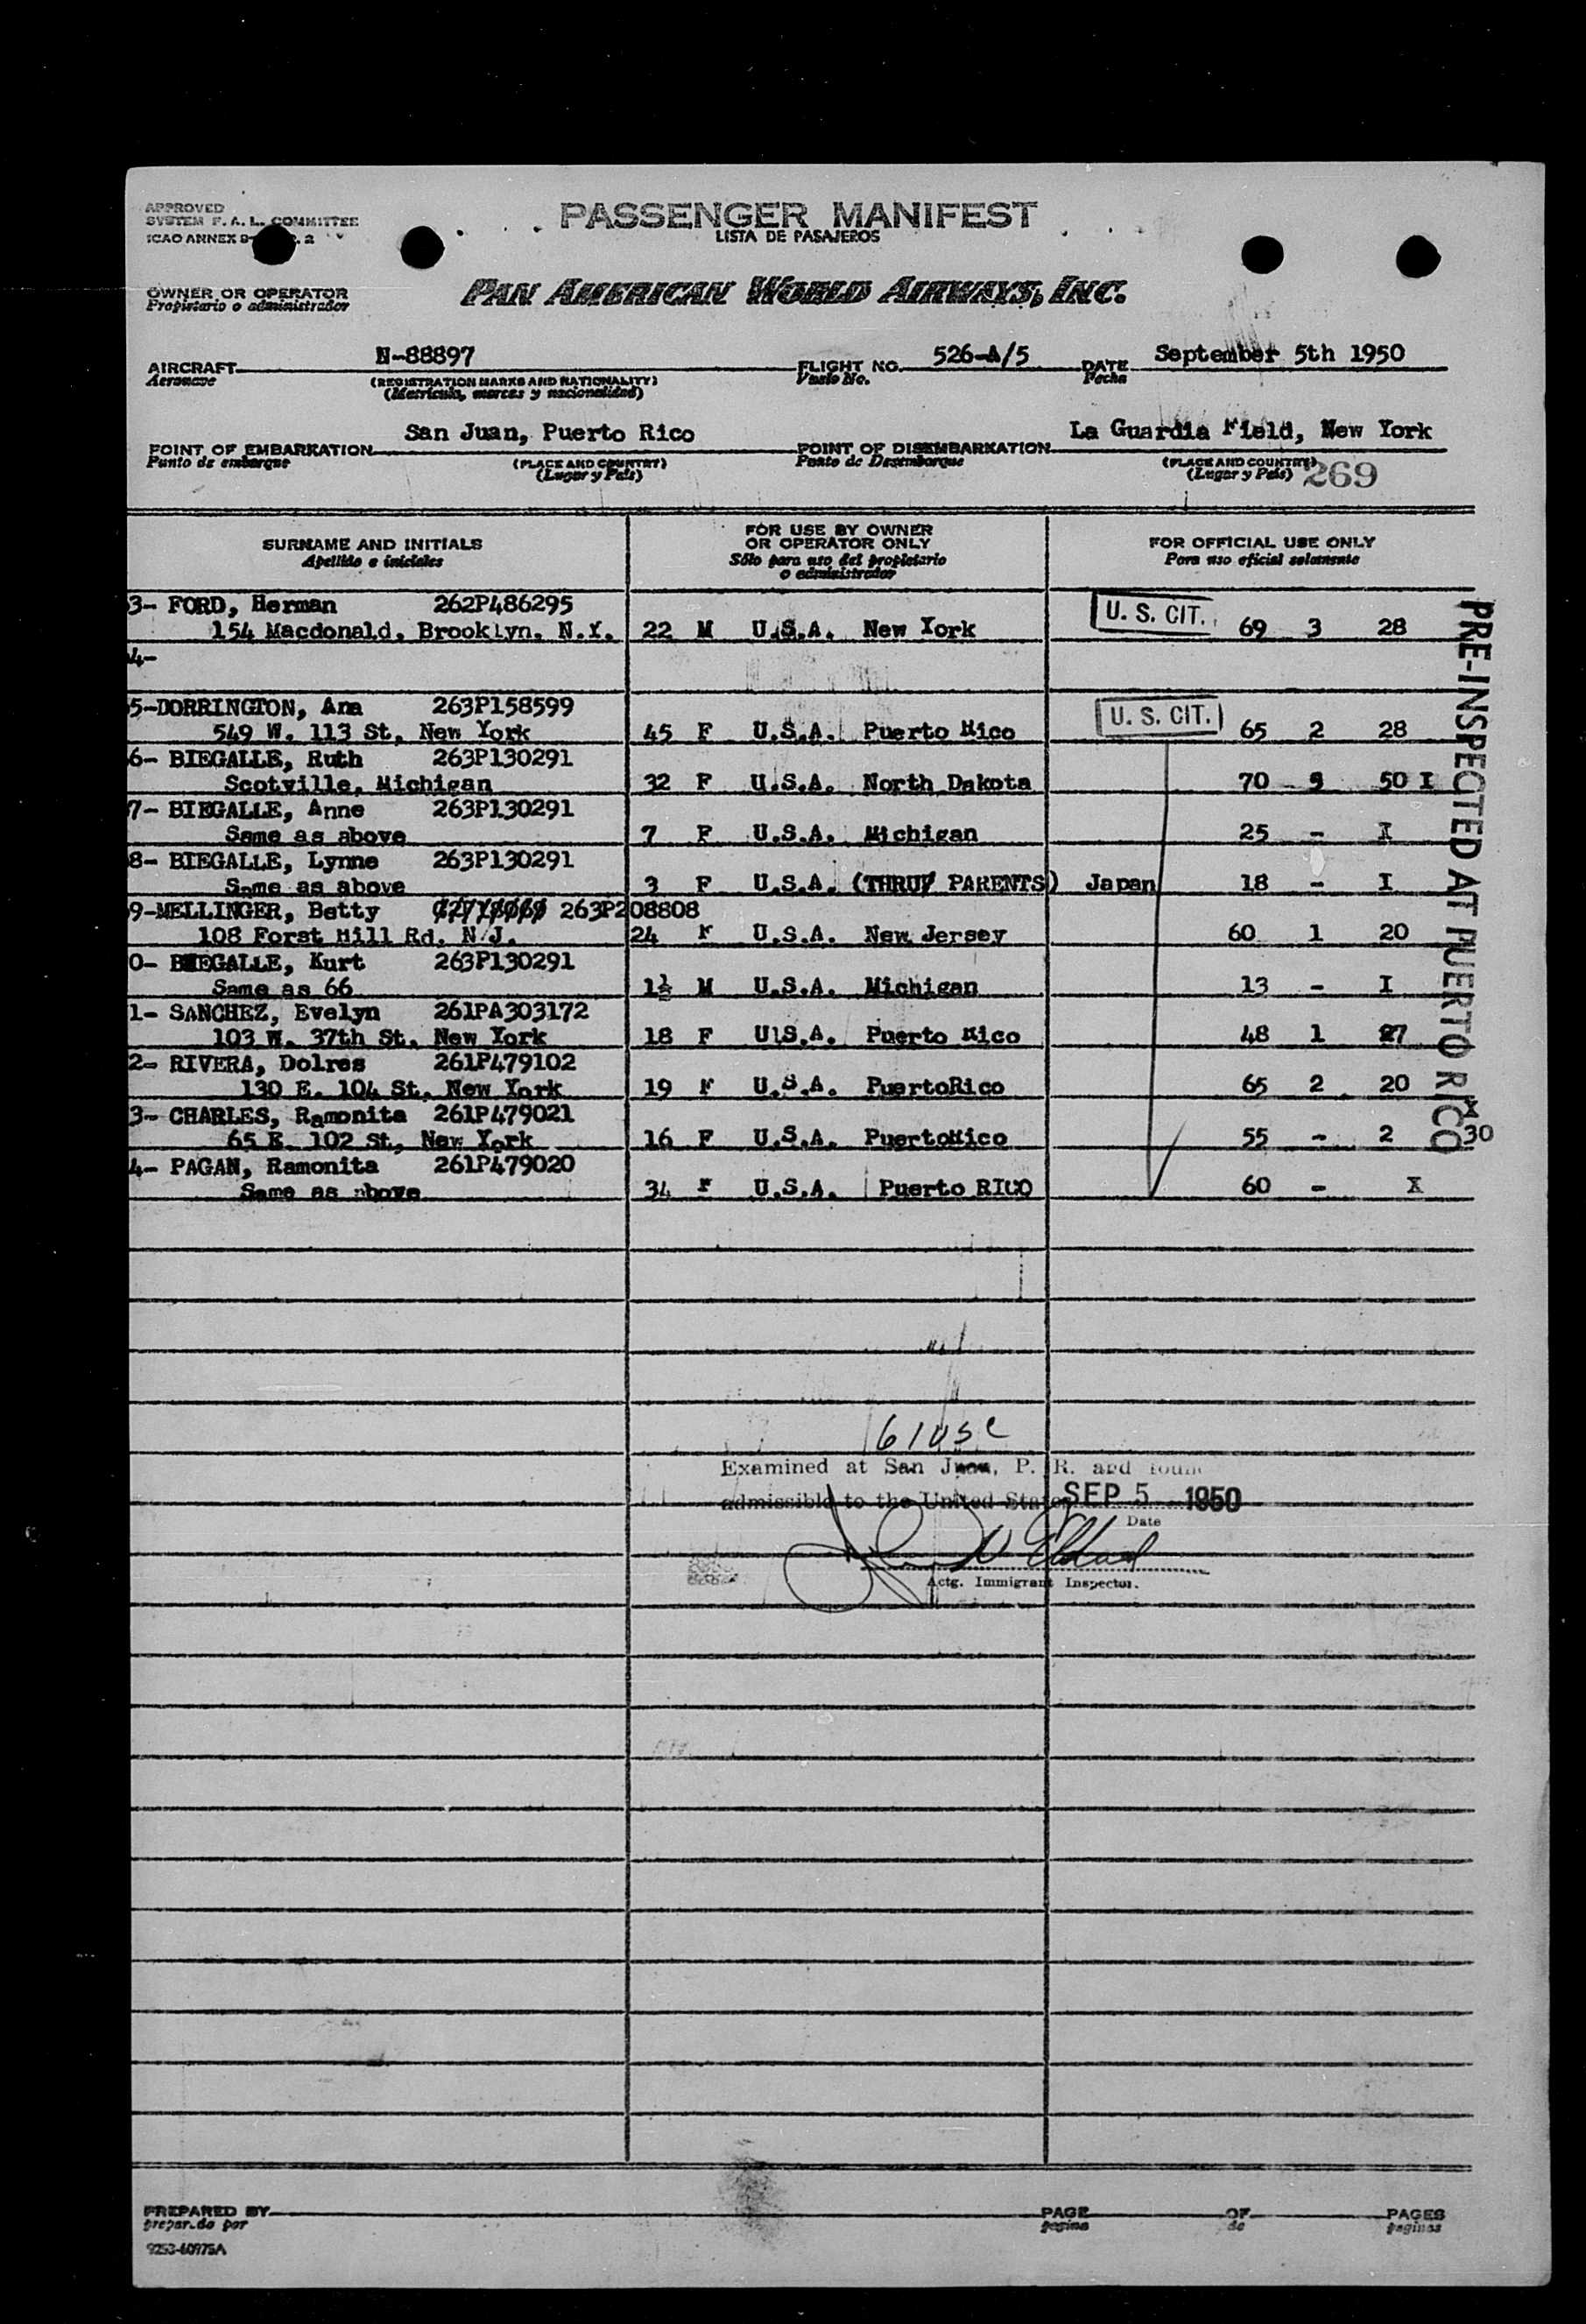 APPROVED
SYSTEM F. A. L. COMMITTEE
ICAO ANNEX 9- . 2
PASSENGER MANIFEST
LISTA DE PASAJEROS
OWNER OR OPERATOR
Propietario o administrador
PAN AMERICAN WORLD AIRWAYS, INC.
AIRCRAFT N-88897 FLIGHT NO. 526-A/5 DATE September 5th 1950
Aeronave (REGISTRATION MARKS AND NATIONALITY) Vuelo No. Fecha
(Matricula, marcas y nacionalidad)
POINT OF EMBARKATION San Juan, Puerto Rico POINT OF DISEMBARKATION La Guardia Field, New York
Punto de embarque (PLACE AND COUNTRY) Punto de Desembarque (PLACE AND COUNTRY)
(Lugar y País) (Lugar y País) 269
SURNAME AND INITIALS
Apellido e iniciales
FOR USE BY OWNER
OR OPERATOR ONLY
Sólo para uso del propietario
o administrador
FOR OFFICIAL USE ONLY
Para uso oficial solamente
3- FORD, Herman 262P486295
154 Macdonald, Brooklyn, N.Y. 22 M U.S.A. New York U. S. CIT. 69 3 28
4-
5-DORRINGTON, Ana 263P158599
549 W. 113 St, New York 45 F U.S.A. Puerto Rico U. S. CIT. 65 2 28
6- BIEGALLE, Ruth 263P130291
Scotville, Michigan 32 F U.S.A. North Dakota 70 5 50 I
7- BIEGALLE, Anne 263P130291
Same as above 7 F U.S.A. Michigan 25 - I
8- BIEGALLE, Lynne 263P130291
Same as above 3 F U.S.A. (THRU PARENTS) Japan 18 - I
9-MELLINGER, Betty 263P208808
108 Forst Hill Rd. N.J. 24 F U.S.A. New Jersey 60 1 20
0- BIEGALLE, Kurt 263P130291
Same as 66 1½ M U.S.A. Michigan 13 - I
1- SANCHEZ, Evelyn 261PA303172
103 W. 37th St. New York 18 F U.S.A. Puerto Rico 48 1 27
2- RIVERA, Dolres 261P479102
130 E. 104 St, New York 19 F U.S.A. PuertoRico 65 2 20
3- CHARLES, Ramonita 261P479021
65 E. 102 St, New York 16 F U.S.A. PuertoRico 55 - 2 X 30
4- PAGAN, Ramonita 261P479020
Same as above 34 F U.S.A. Puerto RICO 60 - X
PRE-INSPECTED AT PUERTO RICO
61 USC
Examined at San Juan, P. R. and found
admissible to the United States SEP 5 1950
Date
Actg. Immigrant Inspector.
PREPARED BY PAGE OF PAGES
preparado por pagina de paginas
9253-60975A